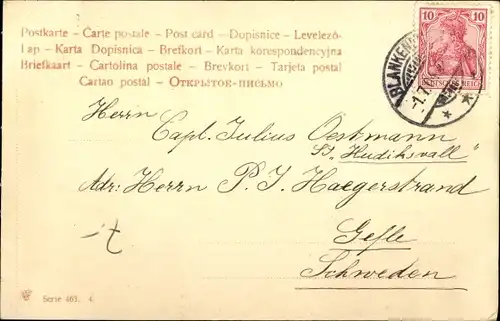 Postkarte – Carte postale – Post card – Dopisnice – Levelező-
Lap – Karta Dopisnica – Brefkort – Karta korespondencyjna
Briefkaart – Cartolina postale – Brevkort – Tarjeta postal
Cartao postal – Открытое-письмо
10 10
DEUTSCHES REICH
BLANKEN
Herrn
Capt. Julius Oestmann
SS „Hudiksvall"
Adr: Herrn P. J. Haegerstrand
Gefle
Schweden
Serie 463. 4